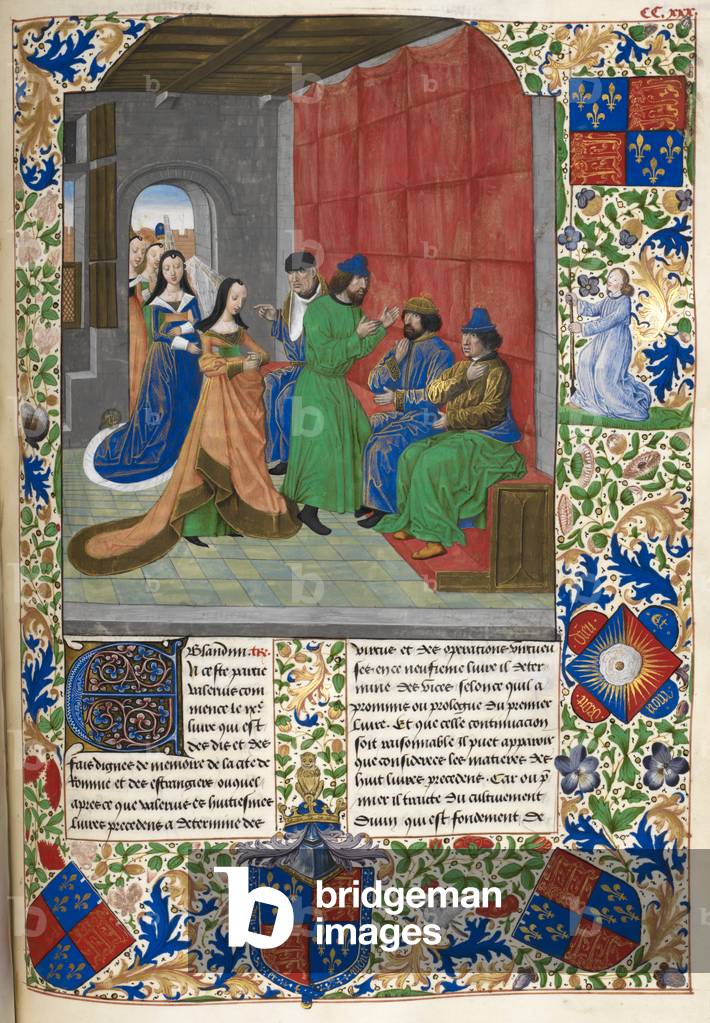 CC. xxx.
N ceste partie
valerius com
mence le ixe
liure qui est
des dis et des
fais dignes de memoire de la cite de
Romme et des estrangiers ouquel
apres ce que valerius es huitiesmes
liures precedens a determine des
virtus et des operations virtueu
ses. en ce neufieme liure il deter
mine des vices. selonc quil a
promimz ou prologue du premier
liure. Et que celle continuation
soit raisonnable il puet apparoir
que considerees les matieres des
huit liures precedens. Car ou p
mier il traicte du cultiuement
diuin qui est fondement de
Dieu
Et
mon
droit
b bridgeman
images